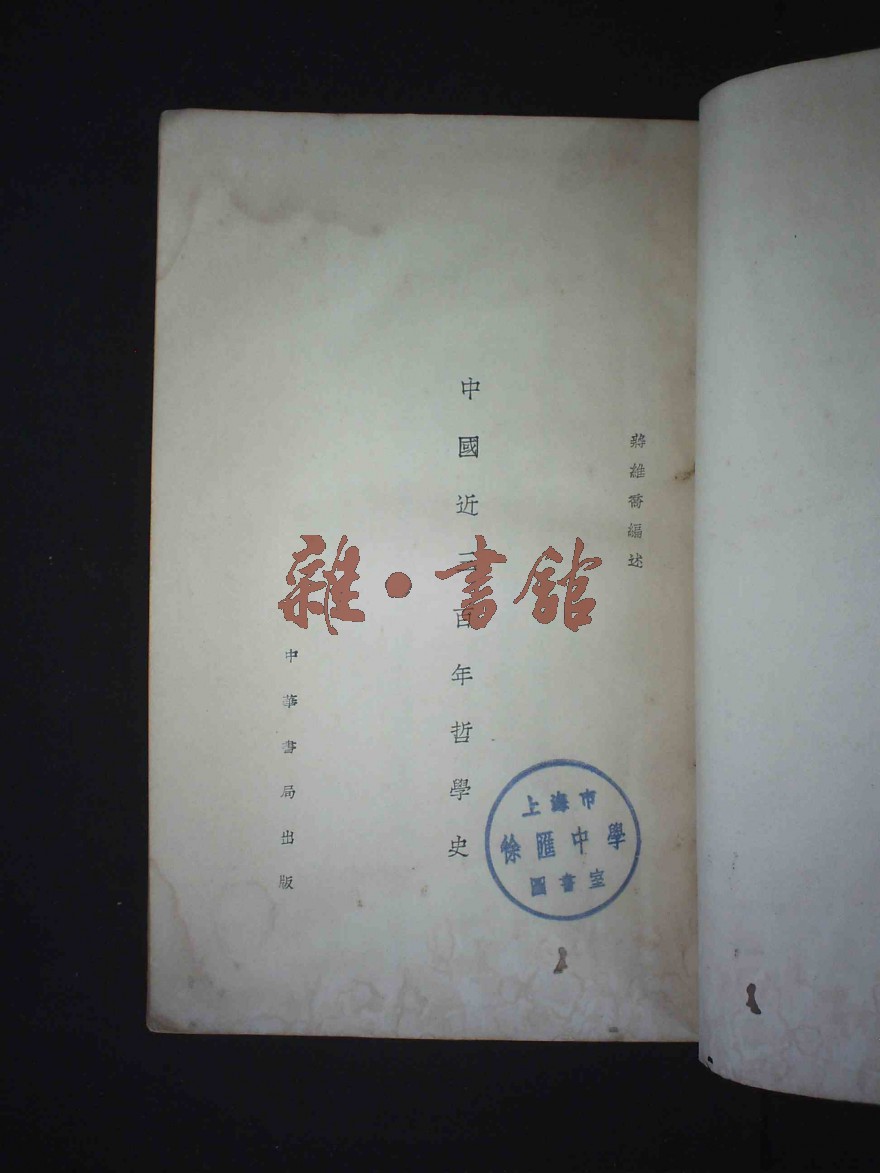 蔣維喬編述
中國近三百年哲學史
中華書局出版
雜·書館
上海市
徐匯中學
圖書室